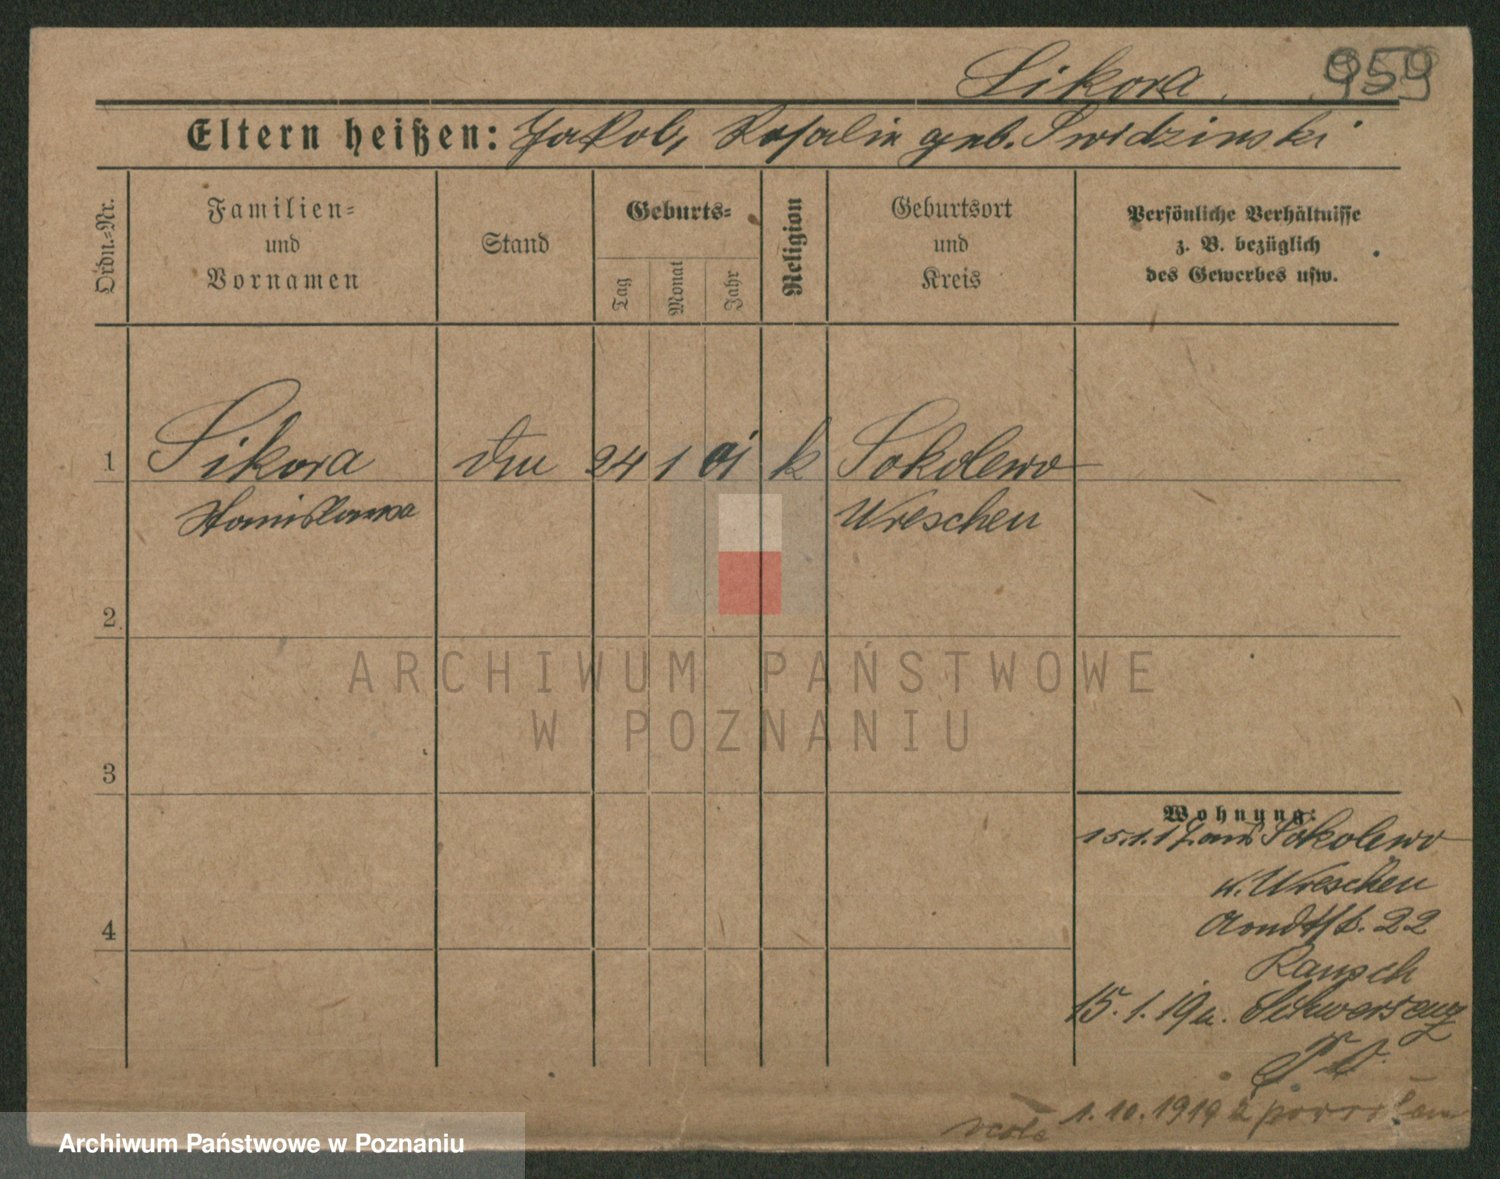 Sikora 959
Eltern heißen: Jakob, Rosalie geb. Swidzinski
Ordn.-Nr.
Familien-
und
Vornamen
Stand
Geburts-
Tag
Monat
Jahr
Religion
Geburtsort
und
Kreis
Persönliche Verhältnisse
z. B. bezüglich
des Gewerbes usw.
1 Sikora 24 1 01 k Sokolewo
Stanislawa Wreschen
2
3
4
Wohnung:
15.1.17. aus Sokolewo
k. Wreschen
Arndtstr. 22
Rausch
15.1.19 n. Schwersenz
1.10.1919 z
ARCHIWUM PAŃSTWOWE
W POZNANIU
Archiwum Państwowe w Poznaniu